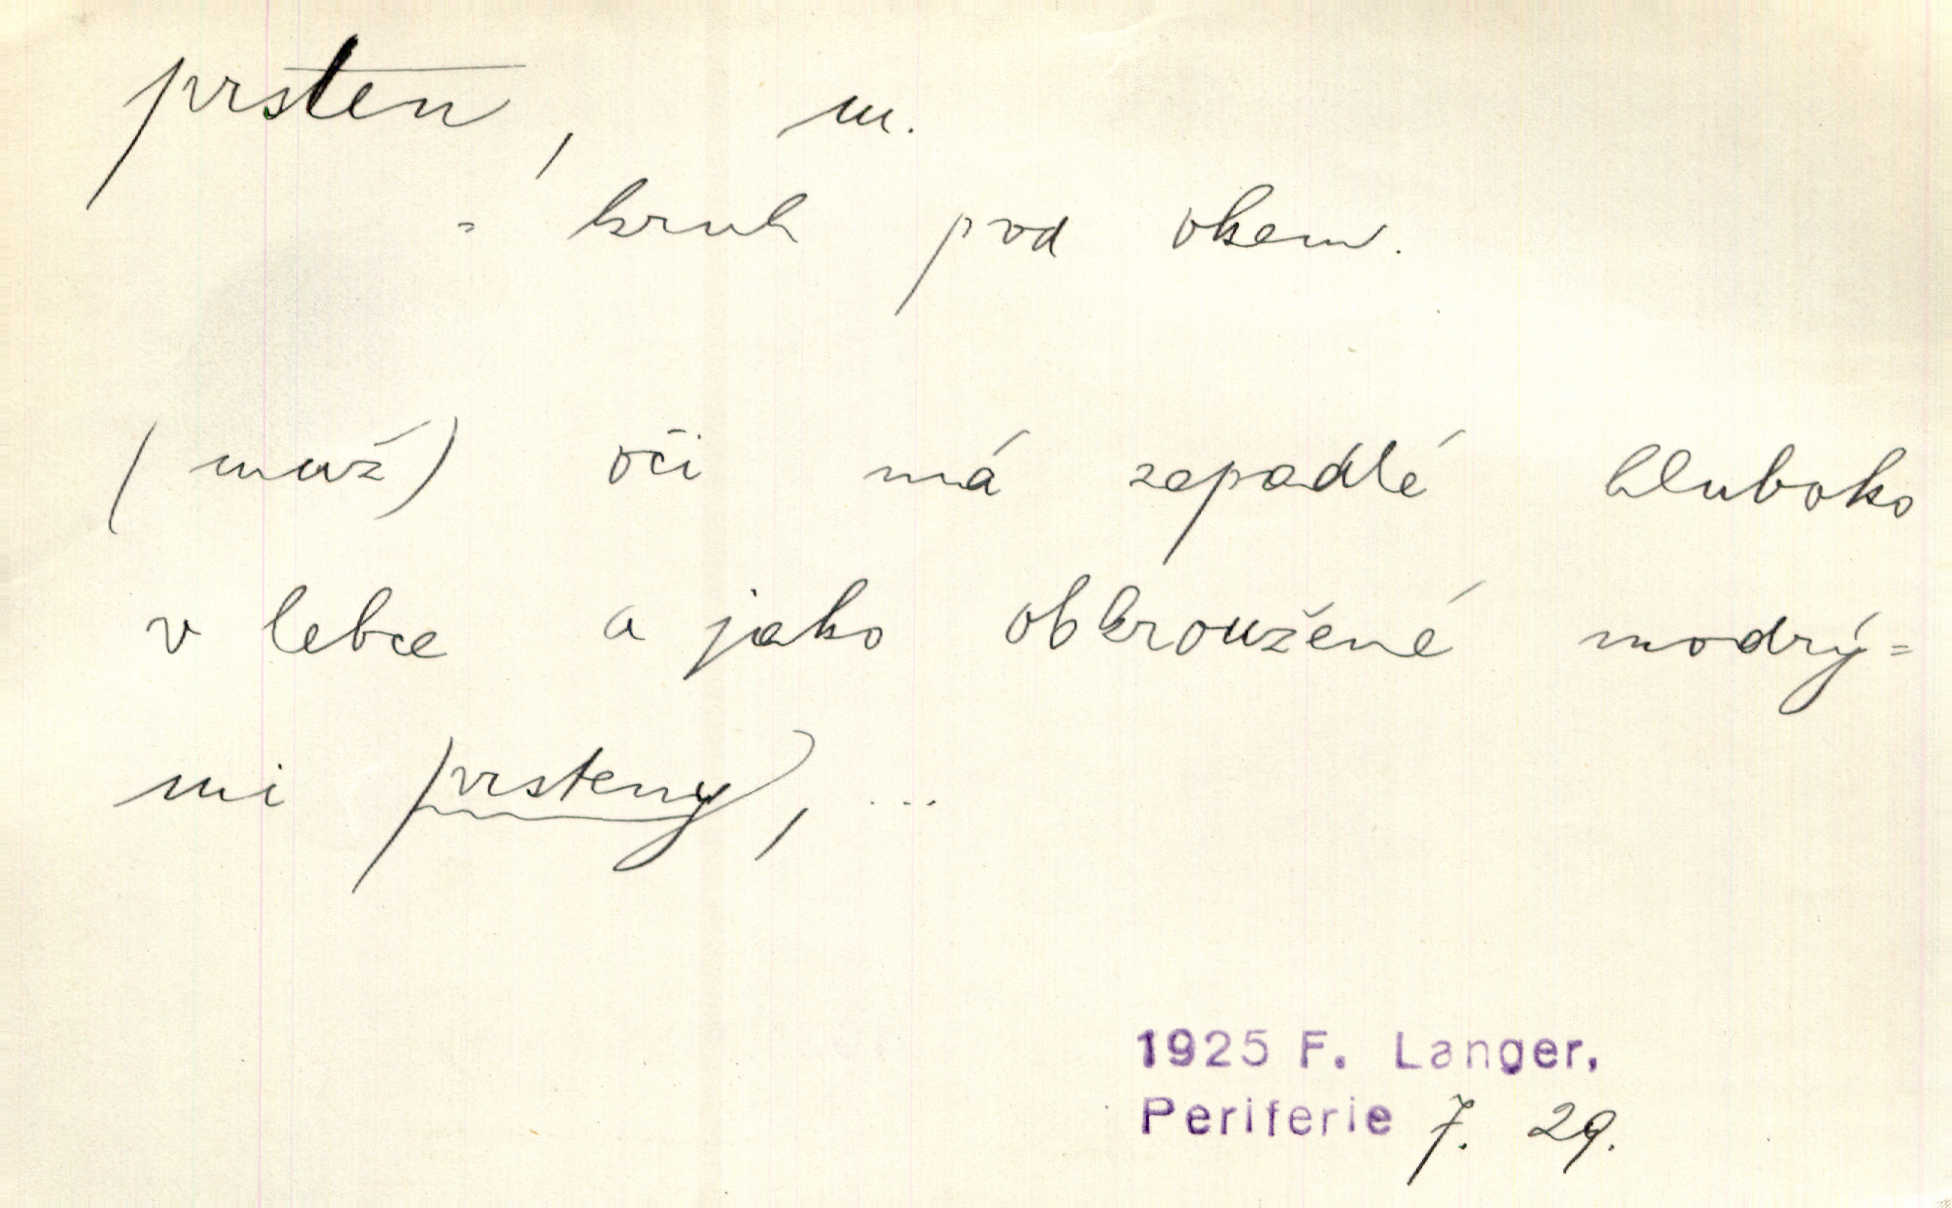 prsten, m.
= kruh pod okem.
(muž) oči má zapadlé hluboko
v lebce a jako obkroužené modrý=
mi prsteny, ...
1925 F. Langer,
Periferie 7. 29.